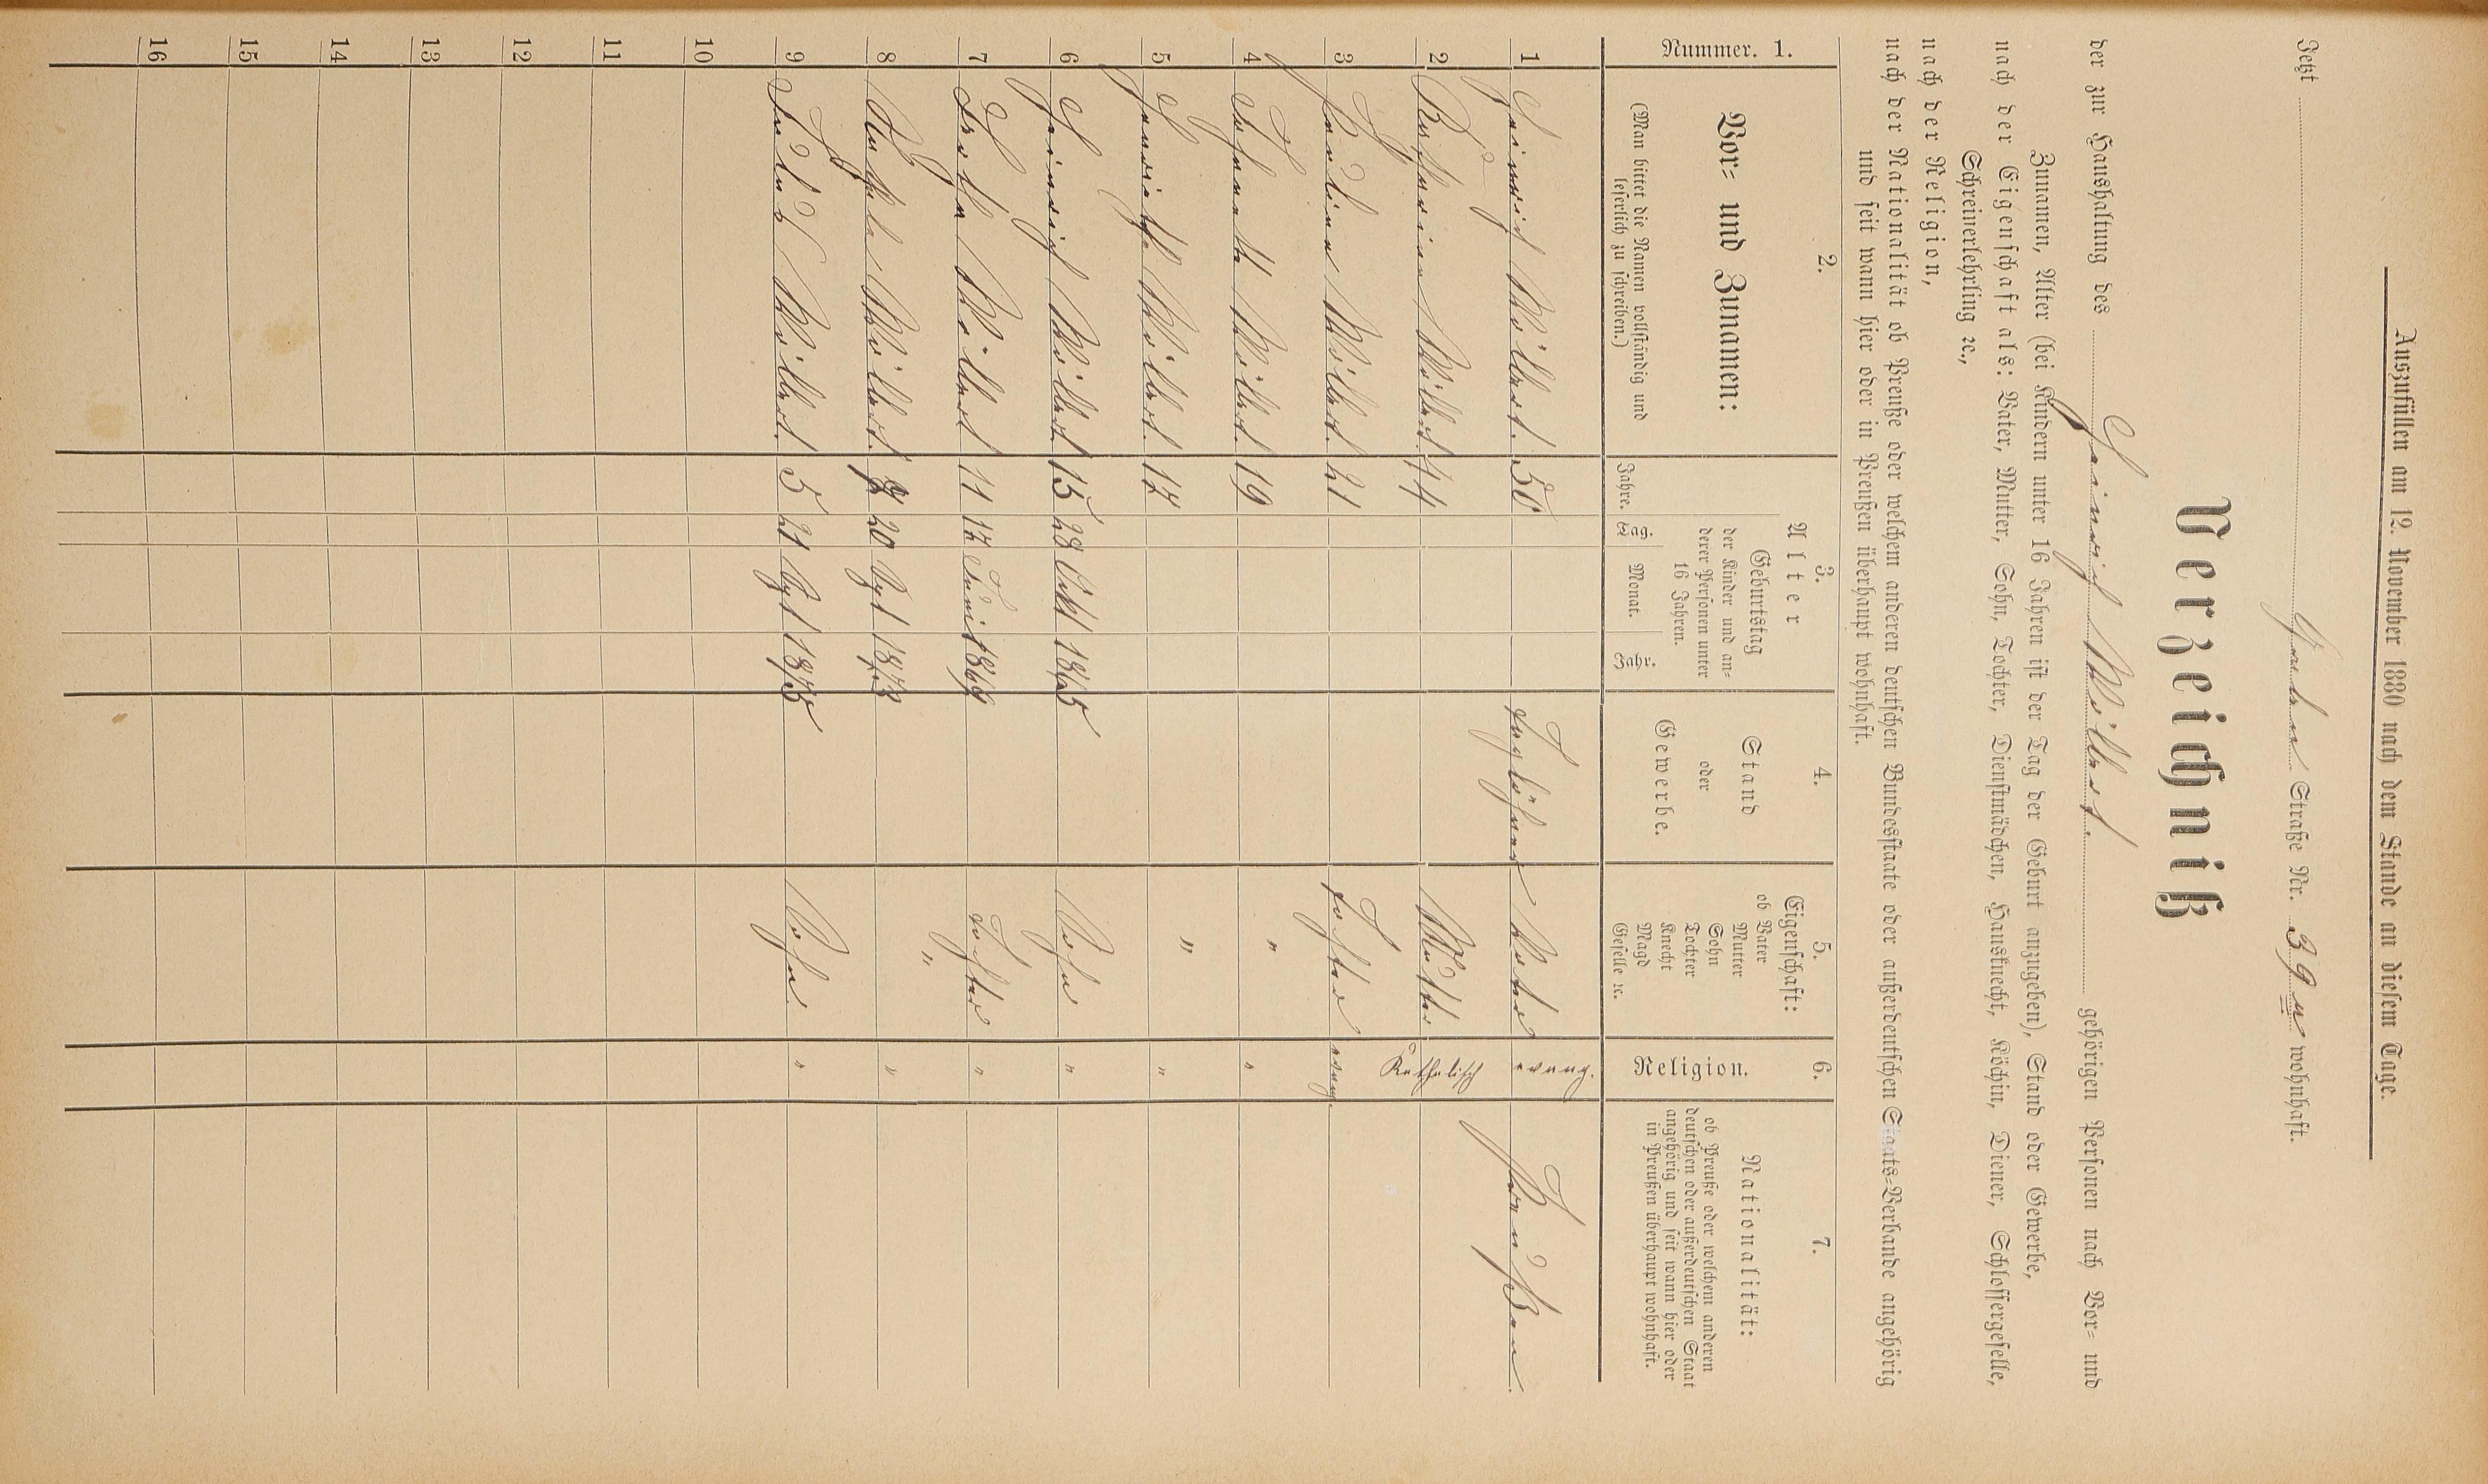 Auszufüllen am 12. November 1880 nach dem Stande an diesem Tage.
Jetzt Straße Nr. 39 a wohnhaft.
Verzeichniß
der zur Haushaltung des Heinrich Wöllert. gehörigen Personen nach Vor= und
Zunamen, Alter (bei Kindern unter 16 Jahren ist der Tag der Geburt anzugeben), Stand oder Gewerbe,
nach der Eigenschaft als: Vater, Mutter, Sohn, Tochter, Dienstmädchen, Hausknecht, Köchin, Diener, Schlossergeselle,
Schreinerlehrling ꝛc.,
nach der Religion,
nach der Nationalität ob Preuße oder welchem anderen deutschen Bundesstaate oder außerdeutschen Staats=Verbande angehörig
und seit wann hier oder in Preußen überhaupt wohnhaft.
Nummer. 1.
2.
Vor= und Zunamen:
(Man bittet die Namen vollständig und
leserlich zu schreiben.)
3.
Alter
Geburtstag
der Kinder und an=
derer Personen unter
16 Jahren.
Jahre. Tag. Monat. Jahr.
4.
Stand
oder
Gewerbe.
5.
Eigenschaft:
ob Vater
Mutter
Sohn
Tochter
Knecht
Magd
Geselle ꝛc.
6.
Religion.
7.
Nationalität:
ob Preuße oder welchem anderen
deutschen oder außerdeutschen Staat
angehörig und seit wann hier oder
in Preußen überhaupt wohnhaft.
1 Heinrich Wöllert. 50 Taglöhner Vater evang. Preußen
2 Wöllert. 44 Mutter Katholisch
3 Paulina Wöllert. 21 Tochter evang.
4 Wöllert. 19 " "
5 Wöllert. 17 " "
6 Heinrich Wöllert 15 28 Okt 1865 Sohn "
7 Wöllert 11 17 Juni 1869 Tochter "
8 Wöllert. 7 20 Spt 1873 " "
9 Wöllert. 5 21 Spt 1875 Sohn "
10
11
12
13
14
15
16